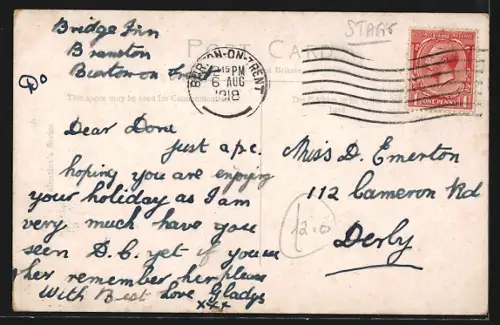 Bridge Inn
Branston
Burton on Trent
Do
STAFFS
POST CARD
BURTON-ON-TRENT
12 15 PM
6 AUG
1918
ONE PENNY
This space may be used for Communication
Dear Dora
just a p.c.
hoping you are enjoying
your holiday as I am
very much have you
seen D.C. yet if you
her remember her please
With Best Love Gladys
xxx
Miss D. Emerton
112 Cameron Rd
Derby
12.0